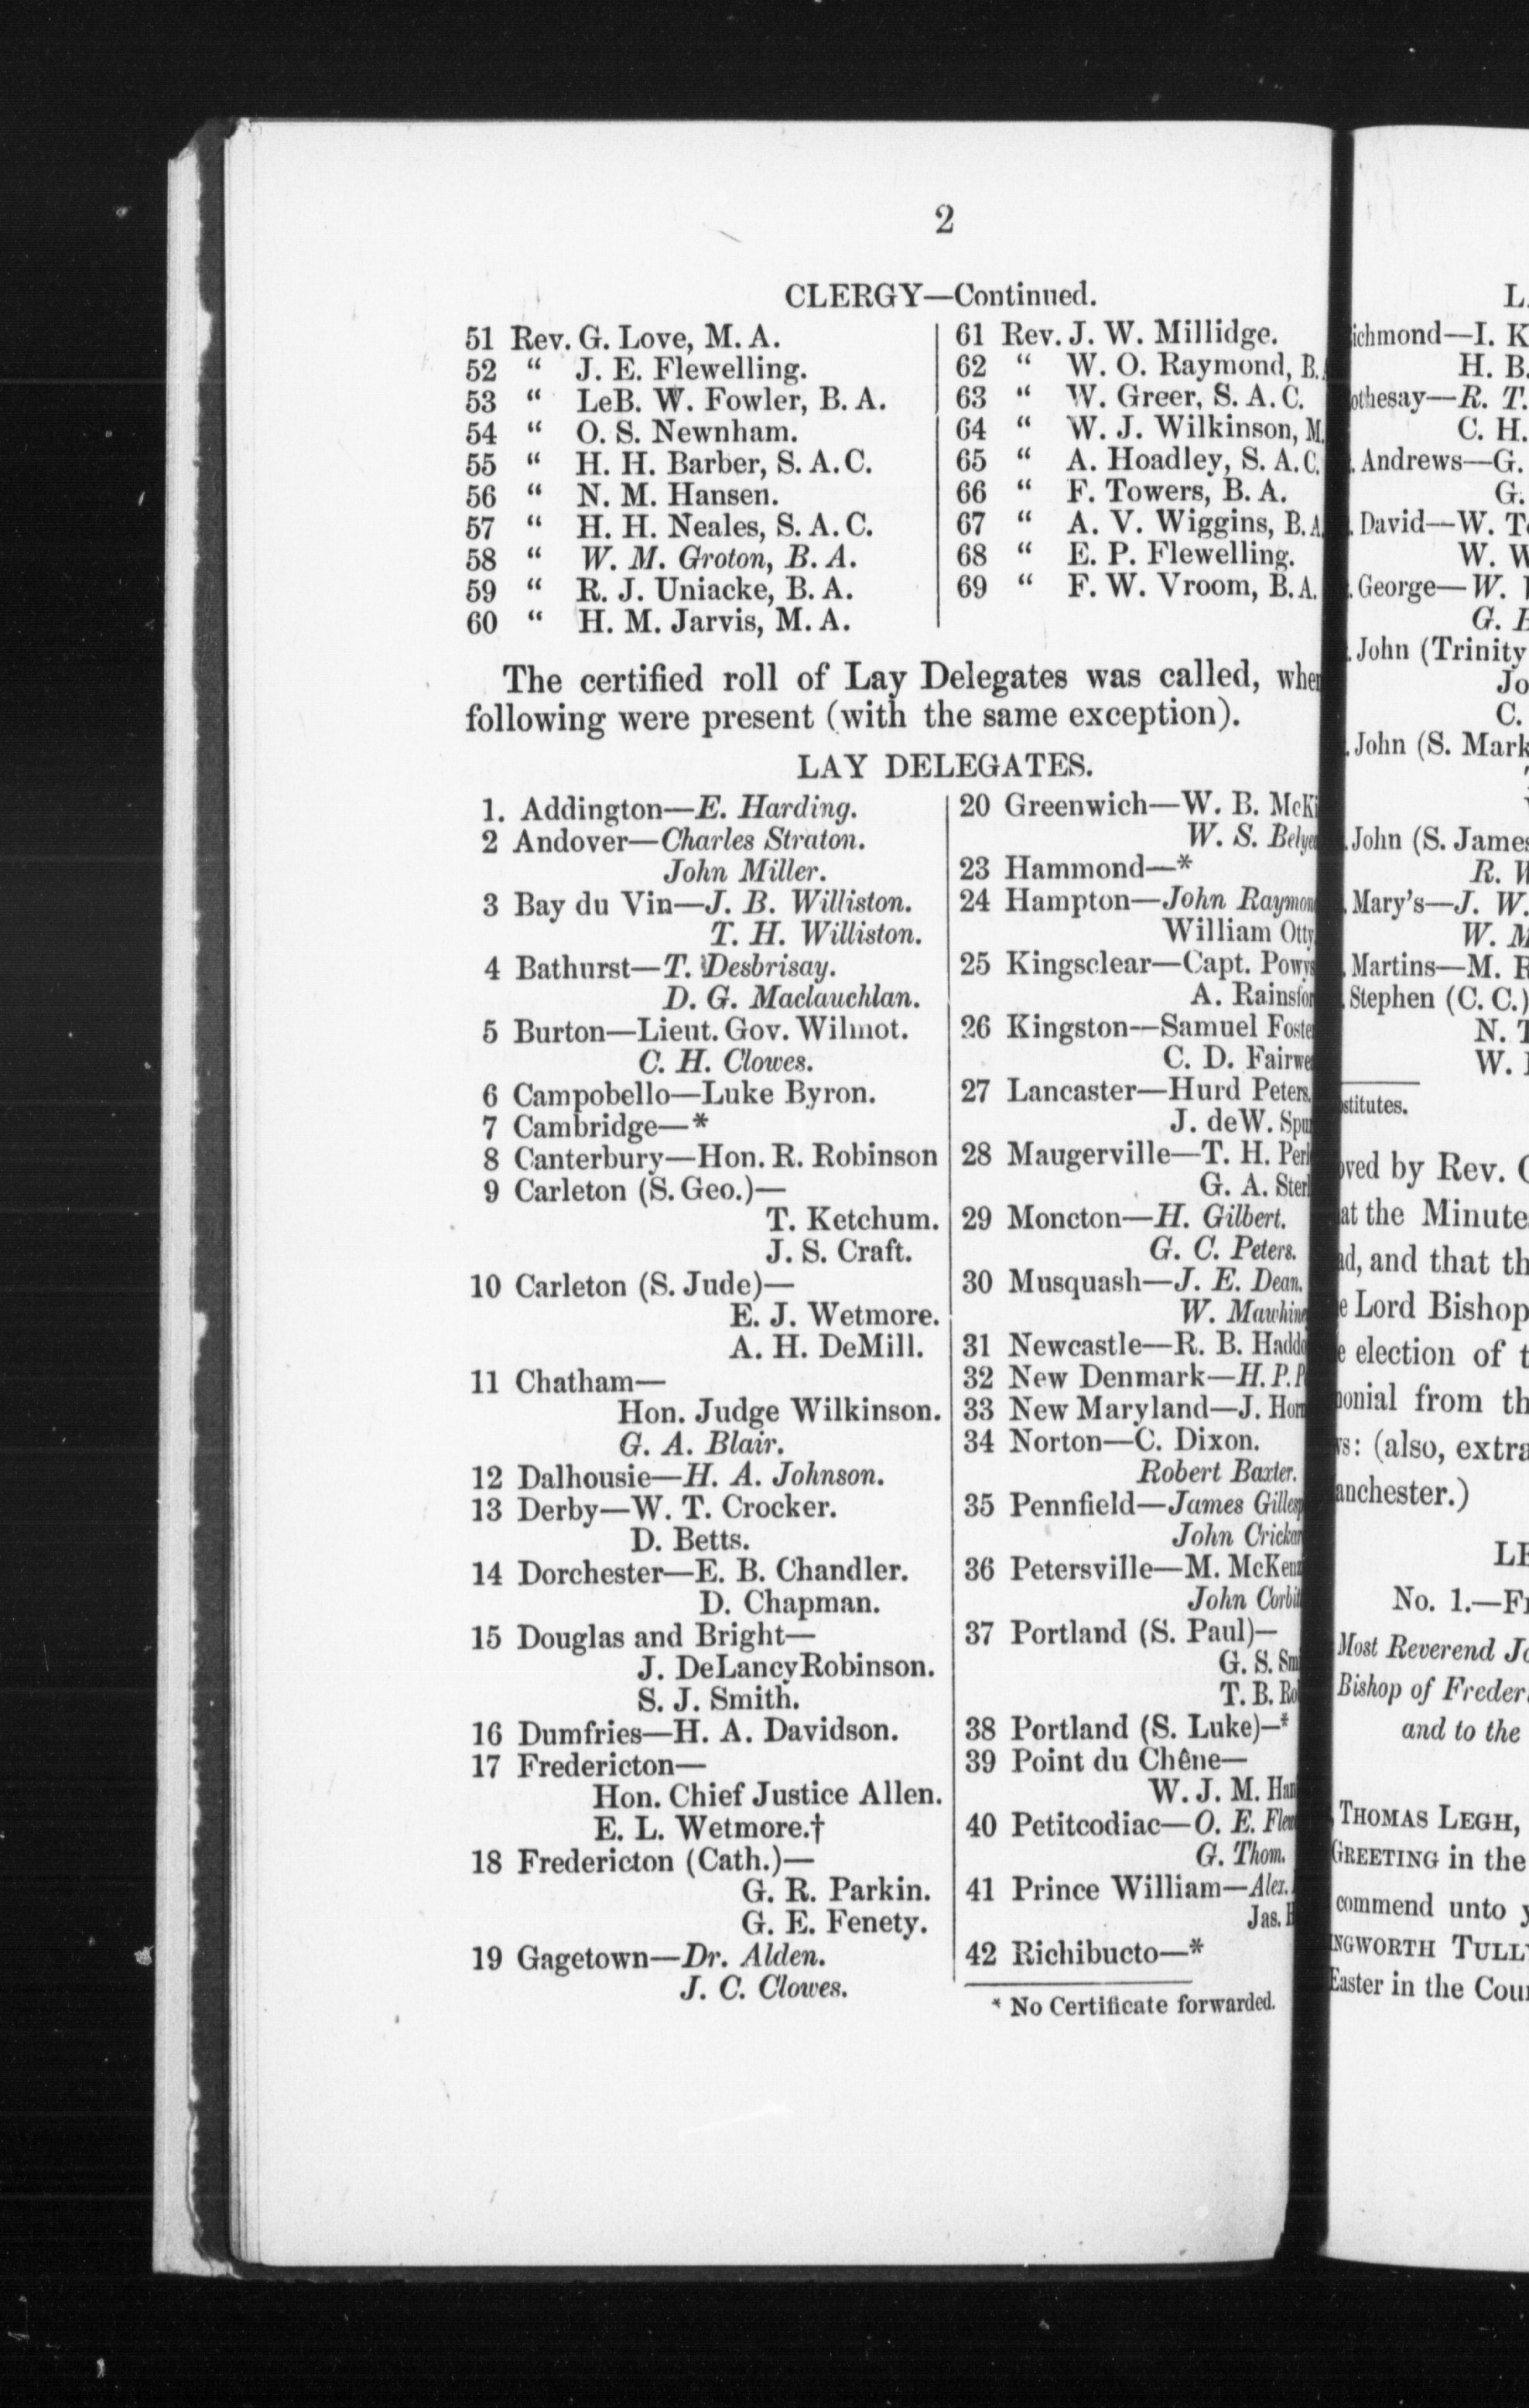 2
CLERGY—Continued.
51 Rev. G. Love, M. A.
52 “ J. E. Flewelling.
53 “ LeB. W. Fowler, B. A.
54 “ O. S. Newnham.
55 “ H. H. Barber, S. A. C.
56 “ N. M. Hansen.
57 “ H. H. Neales, S. A. C.
58 “ W. M. Groton, B. A.
59 “ R. J. Uniacke, B. A.
60 “ H. M. Jarvis, M. A.
61 Rev. J. W. Millidge.
62 “ W. O. Raymond, B.
63 “ W. Greer, S. A. C.
64 “ W. J. Wilkinson, M.
65 “ A. Hoadley, S. A. C.
66 “ F. Towers, B. A.
67 “ A. V. Wiggins, B. A
68 “ E. P. Flewelling.
69 “ F. W. Vroom, B. A.
The certified roll of Lay Delegates was called,
following were present (with the same exception).
LAY DELEGATES.
1. Addington—E. Harding.
2 Andover—Charles Straton.
John Miller.
3 Bay du Vin—J. B. Williston.
T. H. Williston.
4 Bathurst—T. Desbrisay.
D. G. Maclauchlan.
5 Burton—Lieut. Gov. Wilmot.
C. H. Clowes.
6 Campobello—Luke Byron.
7 Cambridge—*
8 Canterbury—Hon. R. Robinson
9 Carleton (S. Geo.)—
T. Ketchum.
J. S. Craft.
10 Carleton (S. Jude)—
E. J. Wetmore.
A. H. DeMill.
11 Chatham—
Hon. Judge Wilkinson.
G. A. Blair.
12 Dalhousie—H. A. Johnson.
13 Derby—W. T. Crocker.
D. Betts.
14 Dorchester—E. B. Chandler.
D. Chapman.
15 Douglas and Bright—
J. DeLancy Robinson.
S. J. Smith.
16 Dumfries—H. A. Davidson.
17 Fredericton—
Hon. Chief Justice Allen.
E. L. Wetmore.†
18 Fredericton (Cath.)—
G. R. Parkin.
G. E. Fenety.
19 Gagetown—Dr. Alden.
J. C. Clowes.
20 Greenwich—W. B.
W. S.
23 Hammond—*
24 Hampton—John Raymon
William Otty
25 Kingsclear—Capt. Powys
A. Rainsfor
26 Kingston—Samuel Foste
C. D. Fairwe
27 Lancaster—Hurd Peters.
J. deW. Spu
28 Maugerville—T. H.
G. A.
29 Moncton—H. Gilbert.
G. C. Peters.
30 Musquash—J. E. Dean.
W. Mawhin
31 Newcastle—R. B. Haddo
32 New Denmark—H. P.
33 New Maryland—J.
34 Norton—C. Dixon.
Robert Baxter.
35 Pennfield—James Gilles
John
36 Petersville—M. McKen
John Corbit
37 Portland (S. Paul)—
G. S.
T. B.
38 Portland (S. Luke)—*
39 Point du Chêne—
W. J. M.
40 Petitcodiac—O. E.
G. Thom.
41 Prince William—Alex.
Jas.
42 Richibucto—*
* No Certificate forwarded.
L
ichmond—I. K
H. B.
othesay—R. T.
C. H.
Andrews—G.
G.
David—W. T
W. W
George—W.
G.
John (Trinity
Jo
C.
John (S. Mark
John (S. James
R. W
Mary's—J. W.
W. M
Martins—M.
Stephen (C. C.)
N. T
W.
stitutes.
by Rev.
at the Minute
and that th
Lord Bishop
election of t
from th
(also, extra
anchester.)
LE
No. 1.—
Most Reverend Jo
Bishop of Freder
and to the
THOMAS LEGH,
GREETING in the
commend unto y
INGWORTH TULL
Easter in the Cou